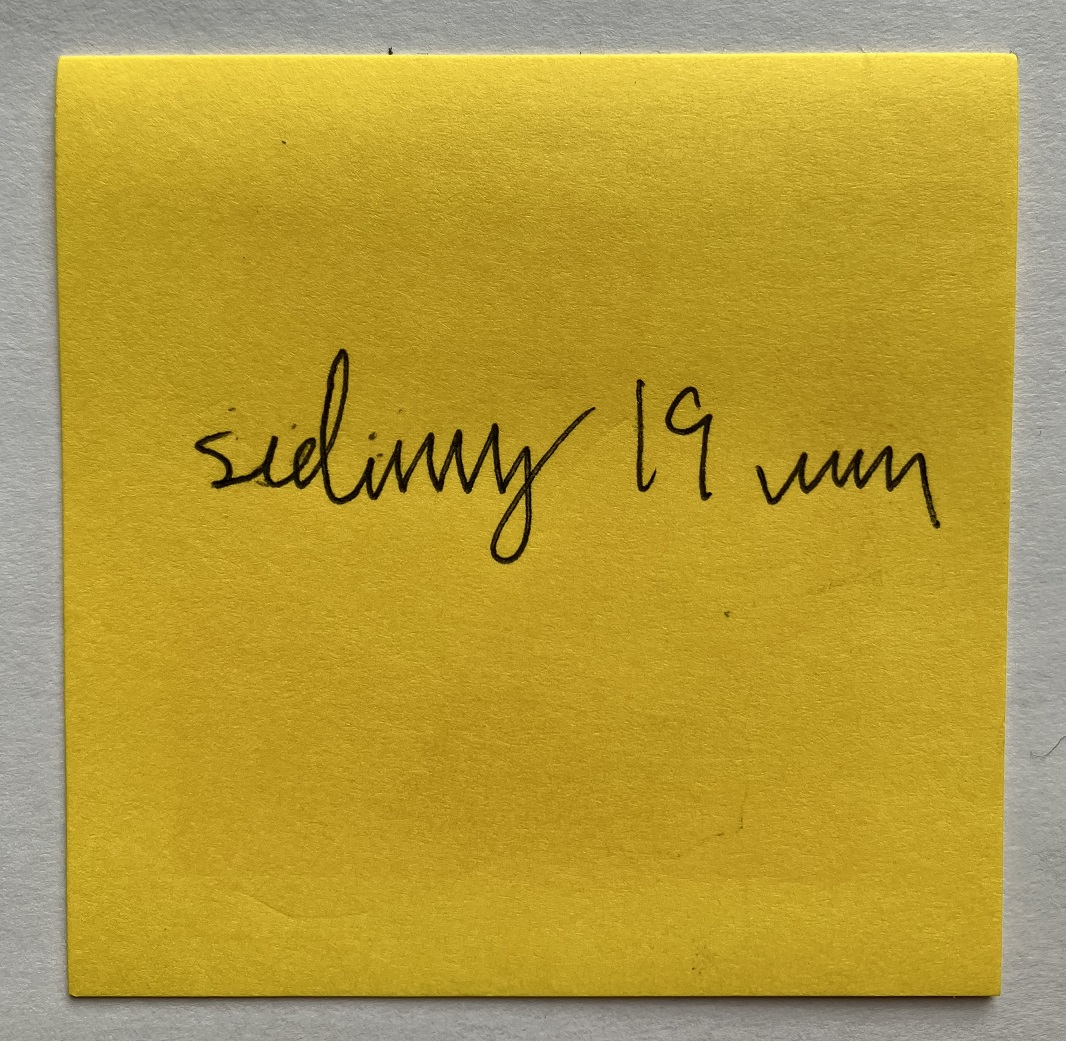 sidimy 19 mm